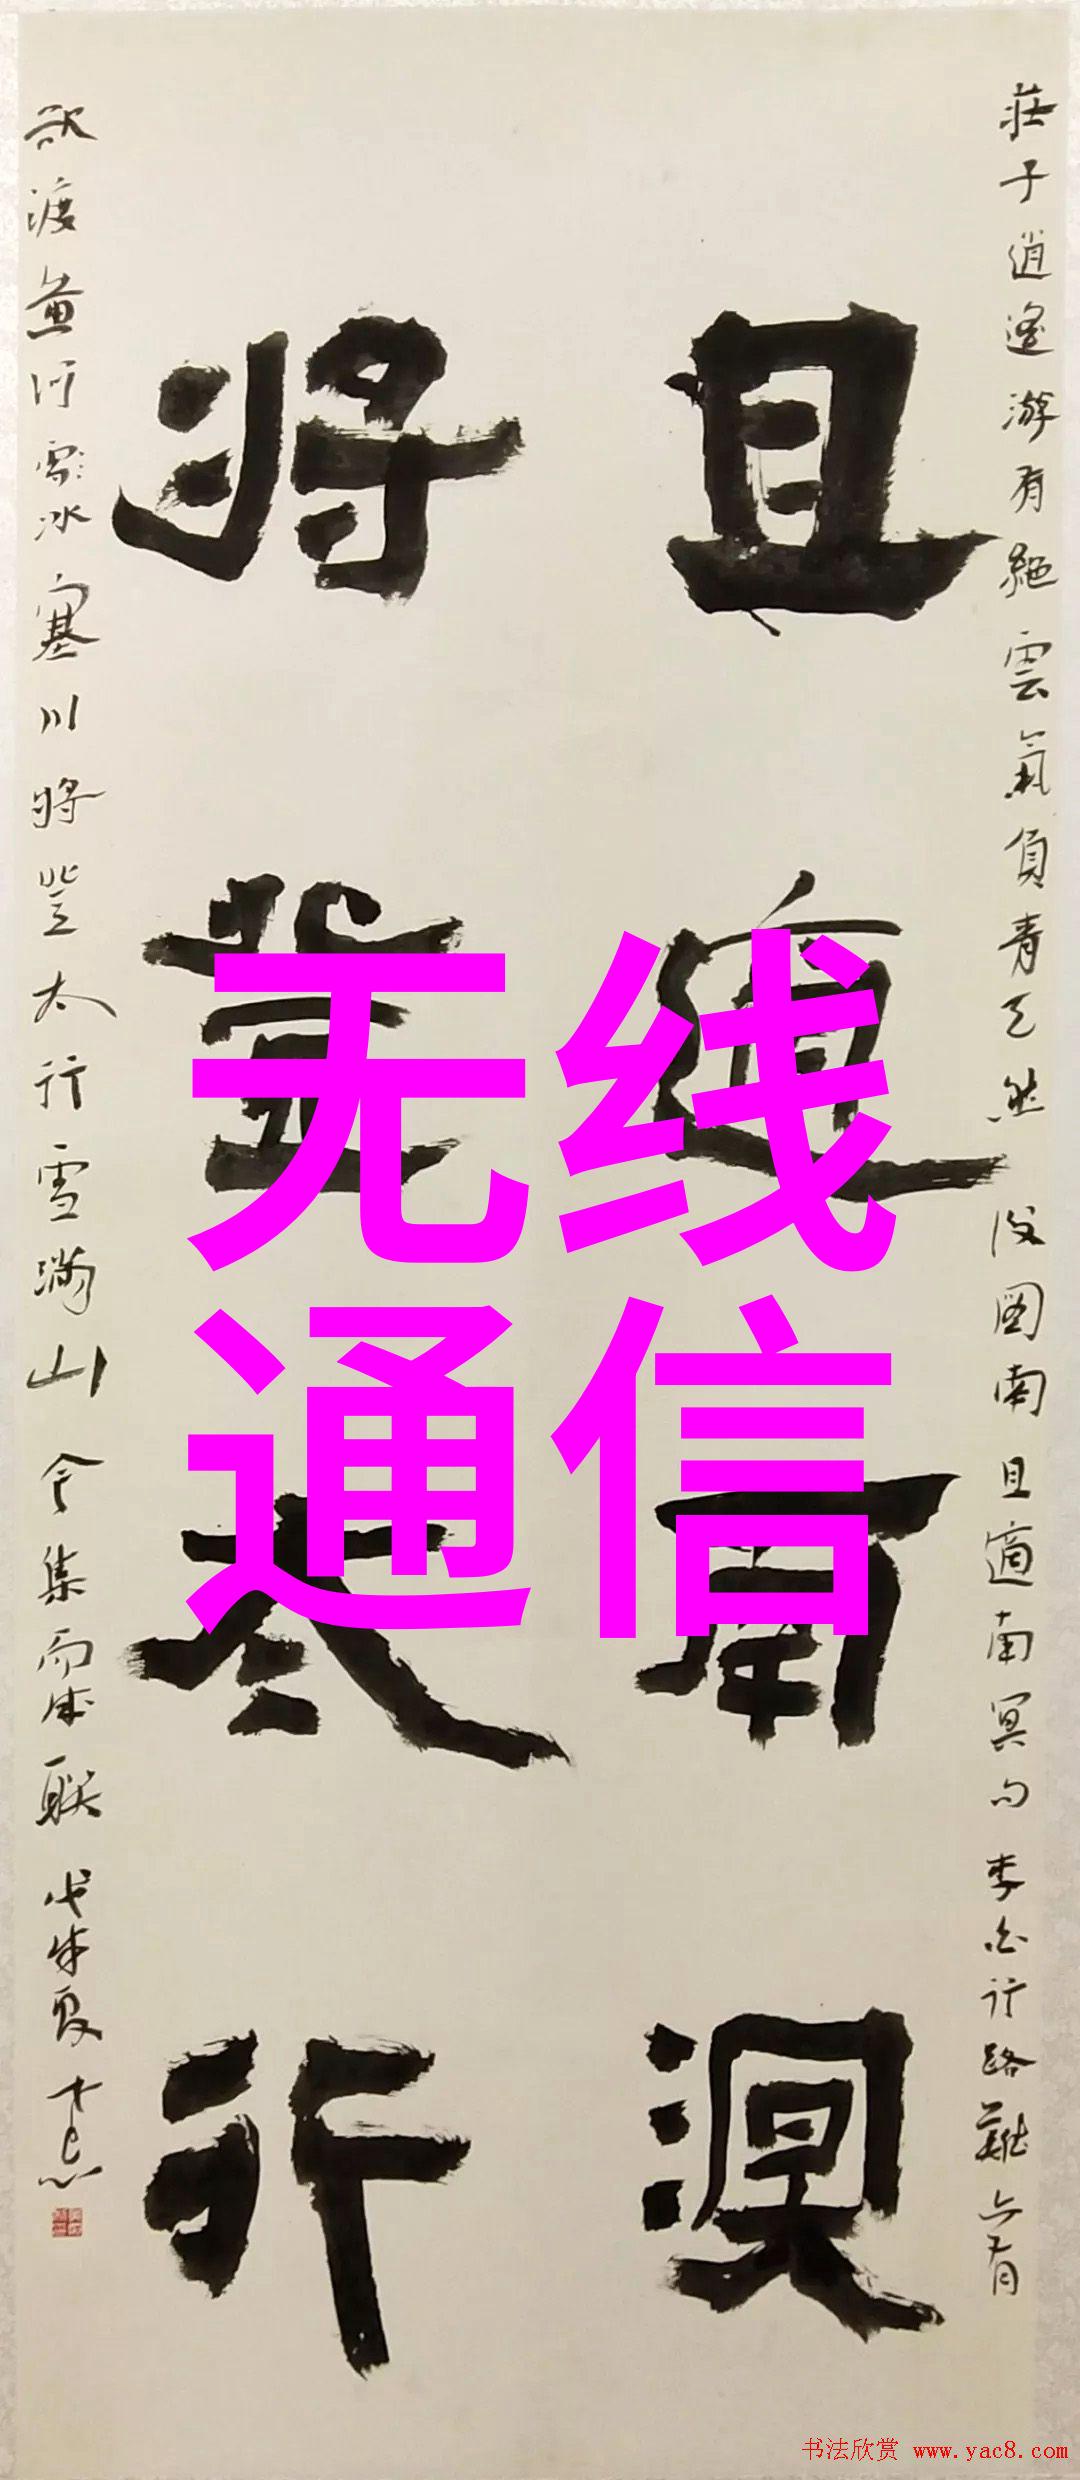 莊子逍遙游有絕雲氣負青天然後圖南且適南冥句李白行路難亦有
且適南溟
將登太行
欲渡黃河冰塞川將登太行雪滿山合集而成联戊戌夏
无线
通信
书法欣赏 www.yac8.com